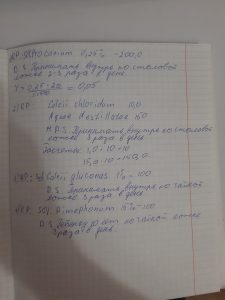 RP: Sol. Procainum 0,25% - 200,0
D.S. Принимать внутрь по столовой
ложке 2-3 раза в день
2) RP: Calcii chloridum 10,0
Aquae destillatae
M.D.S. Принимать внутрь по столовой
ложке 3 раза в день
Расчеты: 1,0 · 10 = 10
15,0 · 10 = 150,0
3) RP: Sol Calcii gluconas 1% - 100
D.S. Принимать внутрь по чайной
ложке 3 раза в день
4) RP: Sol. Dimephonum 15% - 100
D.S. Ребенку 10 лет по чайной ложке
3 раза в день.